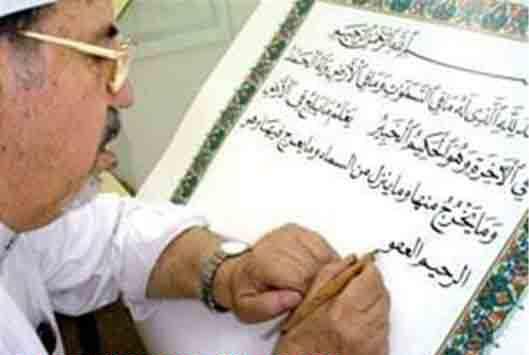 بسم الله الرحمن الرحيم
لله الذي له ما في السموت وما في الأرض وله الحمد
في الآخرة وهو الحكيم الخبير يعلم ما يلج في الأرض
وما يخرج منها وما ينزل من السماء وما يعرج فيها وهو
الرحيم الغفو